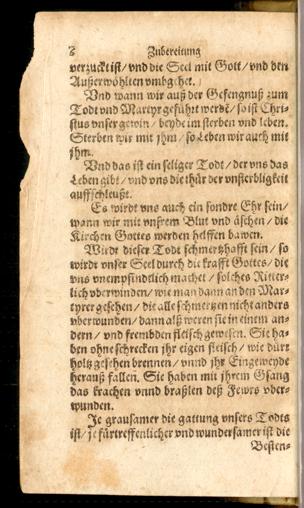 8 Zubereitung
verzuckt ist / vnd die Seel mit Gott / vnd den
Außerwöhlten vmbgehet.
Vnd wann wir auß der Gefengnuß zum
Todt vnd Martyr geführt werdē / so ist Chri-
stus vnser gewin / beyde im sterben vnd leben.
Sterben wir mit jhm / so Leben wir auch mit
jhm.
Vnd das ist ein seliger Todt / der vns das
Leben gibt / vnd vns die thür der vnsterbligkeit
auffschleußt.
Es wirdt vns auch ein sondre Ehr sein /
wann wir mit vnsrem Blut vnd äschen / die
Kirchen Gottes werden helffen bawen.
Wirdt dieser Todt schmertzhafft sein / so
wirdt vnser Seel durch die krafft Gottes / die
vns vnempfindtlich machet / solches Ritter-
lich vberwinden / wie man dann an den Mar-
tyrer gesehen / die alle schmertzen nicht anders
vberwunden / dann alß weren sie in einem an-
dern / vnd frembden fleisch gewesen. Sie ha-
ben ohne schrecken jhr eigen fleisch / wie dürr
holtz gesehen brennen / vnnd jhr Eingeweyde
herauß fallen. Sie haben mit jhrem Gsang
das krachen vnnd braßlen deß Fewrs vber-
wunden.
Je grausamer die gattung vnsers Todts
ist / je fürtreffenlicher vnd wundersamer ist die
Besten-